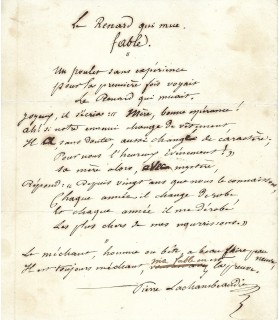 Le Renard qui mue.
fable.
Un poulet sans expérience
pour la première fois voyait
Le Renard qui muait.
joyeux, il s'écrie : " Mère, bonne espérance !
ah ! si notre ennemi change de vêtement
Il a sans doute aussi changé de caractère !
Pour nous l'heureux évènement ! "
Sa mère alors,
Répond : " Depuis vingt ans que nous le connaissons,
Chaque année il change de robe
Et chaque année il me dérobe
Les plus chers de mes nourrissons. "
Le méchant, homme ou bête, a beau faire peau neuve,
Il est toujours méchant, ma fable en la preuve.
Pierre Lachambeaudie